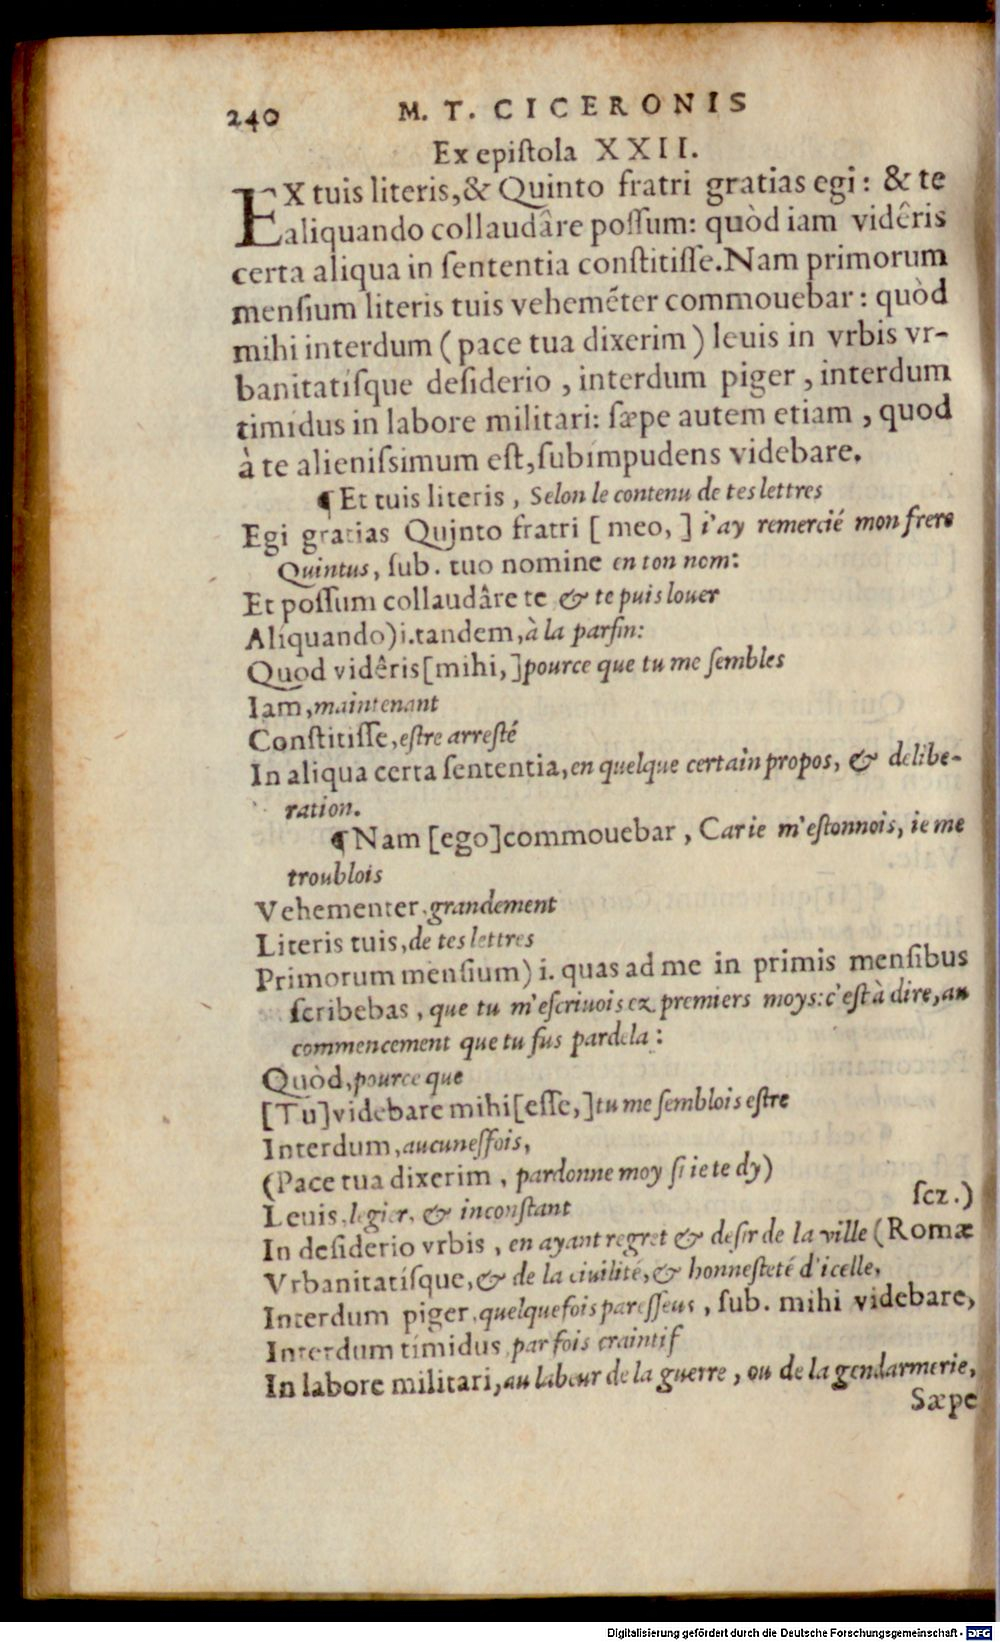 240 M. T. CICERONIS
Ex epistola XXII.
EX tuis literis, & Quinto fratri gratias egi: & te
aliquando collaudâre possum: quòd iam vidêris
certa aliqua in sententia constitisse. Nam primorum
mensium literis tuis vehemẽter commouebar: quòd
mihi interdum (pace tua dixerim) leuis in vrbis vr-
banitatísque desiderio, interdum piger, interdum
timidus in labore militari: sæpe autem etiam, quod
à te alienissimum est, subimpudens videbare.
¶ Et tuis literis, Selon le contenu de tes lettres
Egi gratias Quinto fratri [meo,] i'ay remercié mon frere
Quintus, sub. tuo nomine en ton nom:
Et possum collaudâre te & te puis louer
Aliquando) i. tandem, à la parfin:
Quod vidêris [mihi,] pource que tu me sembles
Iam, maintenant
Constitisse, estre arresté
In aliqua certa sententia, en quelque certain propos, & delibe-
ration.
¶ Nam [ego] commouebar, Car ie m'estonnois, ie me
troublois
Vehementer, grandement
Literis tuis, de tes lettres
Primorum mensium) i. quas ad me in primis mensibus
scribebas, que tu m'escriuois ez premiers moys: c'est à dire, au
commencement que tu fus pardela:
Quòd, pource que
[Tu] videbare mihi [esse,] tu me semblois estre
Interdum, aucunesfois,
(Pace tua dixerim, pardonne moy si ie te dy)
Leuis, legier, & inconstant scz.)
In desiderio vrbis, en ayant regret & desir de la ville (Romæ
Vrbanitatísque, & de la ciuilité, & honnesteté d'icelle,
Interdum piger, quelquefois paresseus, sub. mihi videbare,
Interdum timidus, par fois craintif
In labore militari, au labeur de la guerre, ou de la gendarmerie,
Sæpe
Digitalisierung gefördert durch die Deutsche Forschungsgemeinschaft - DFG